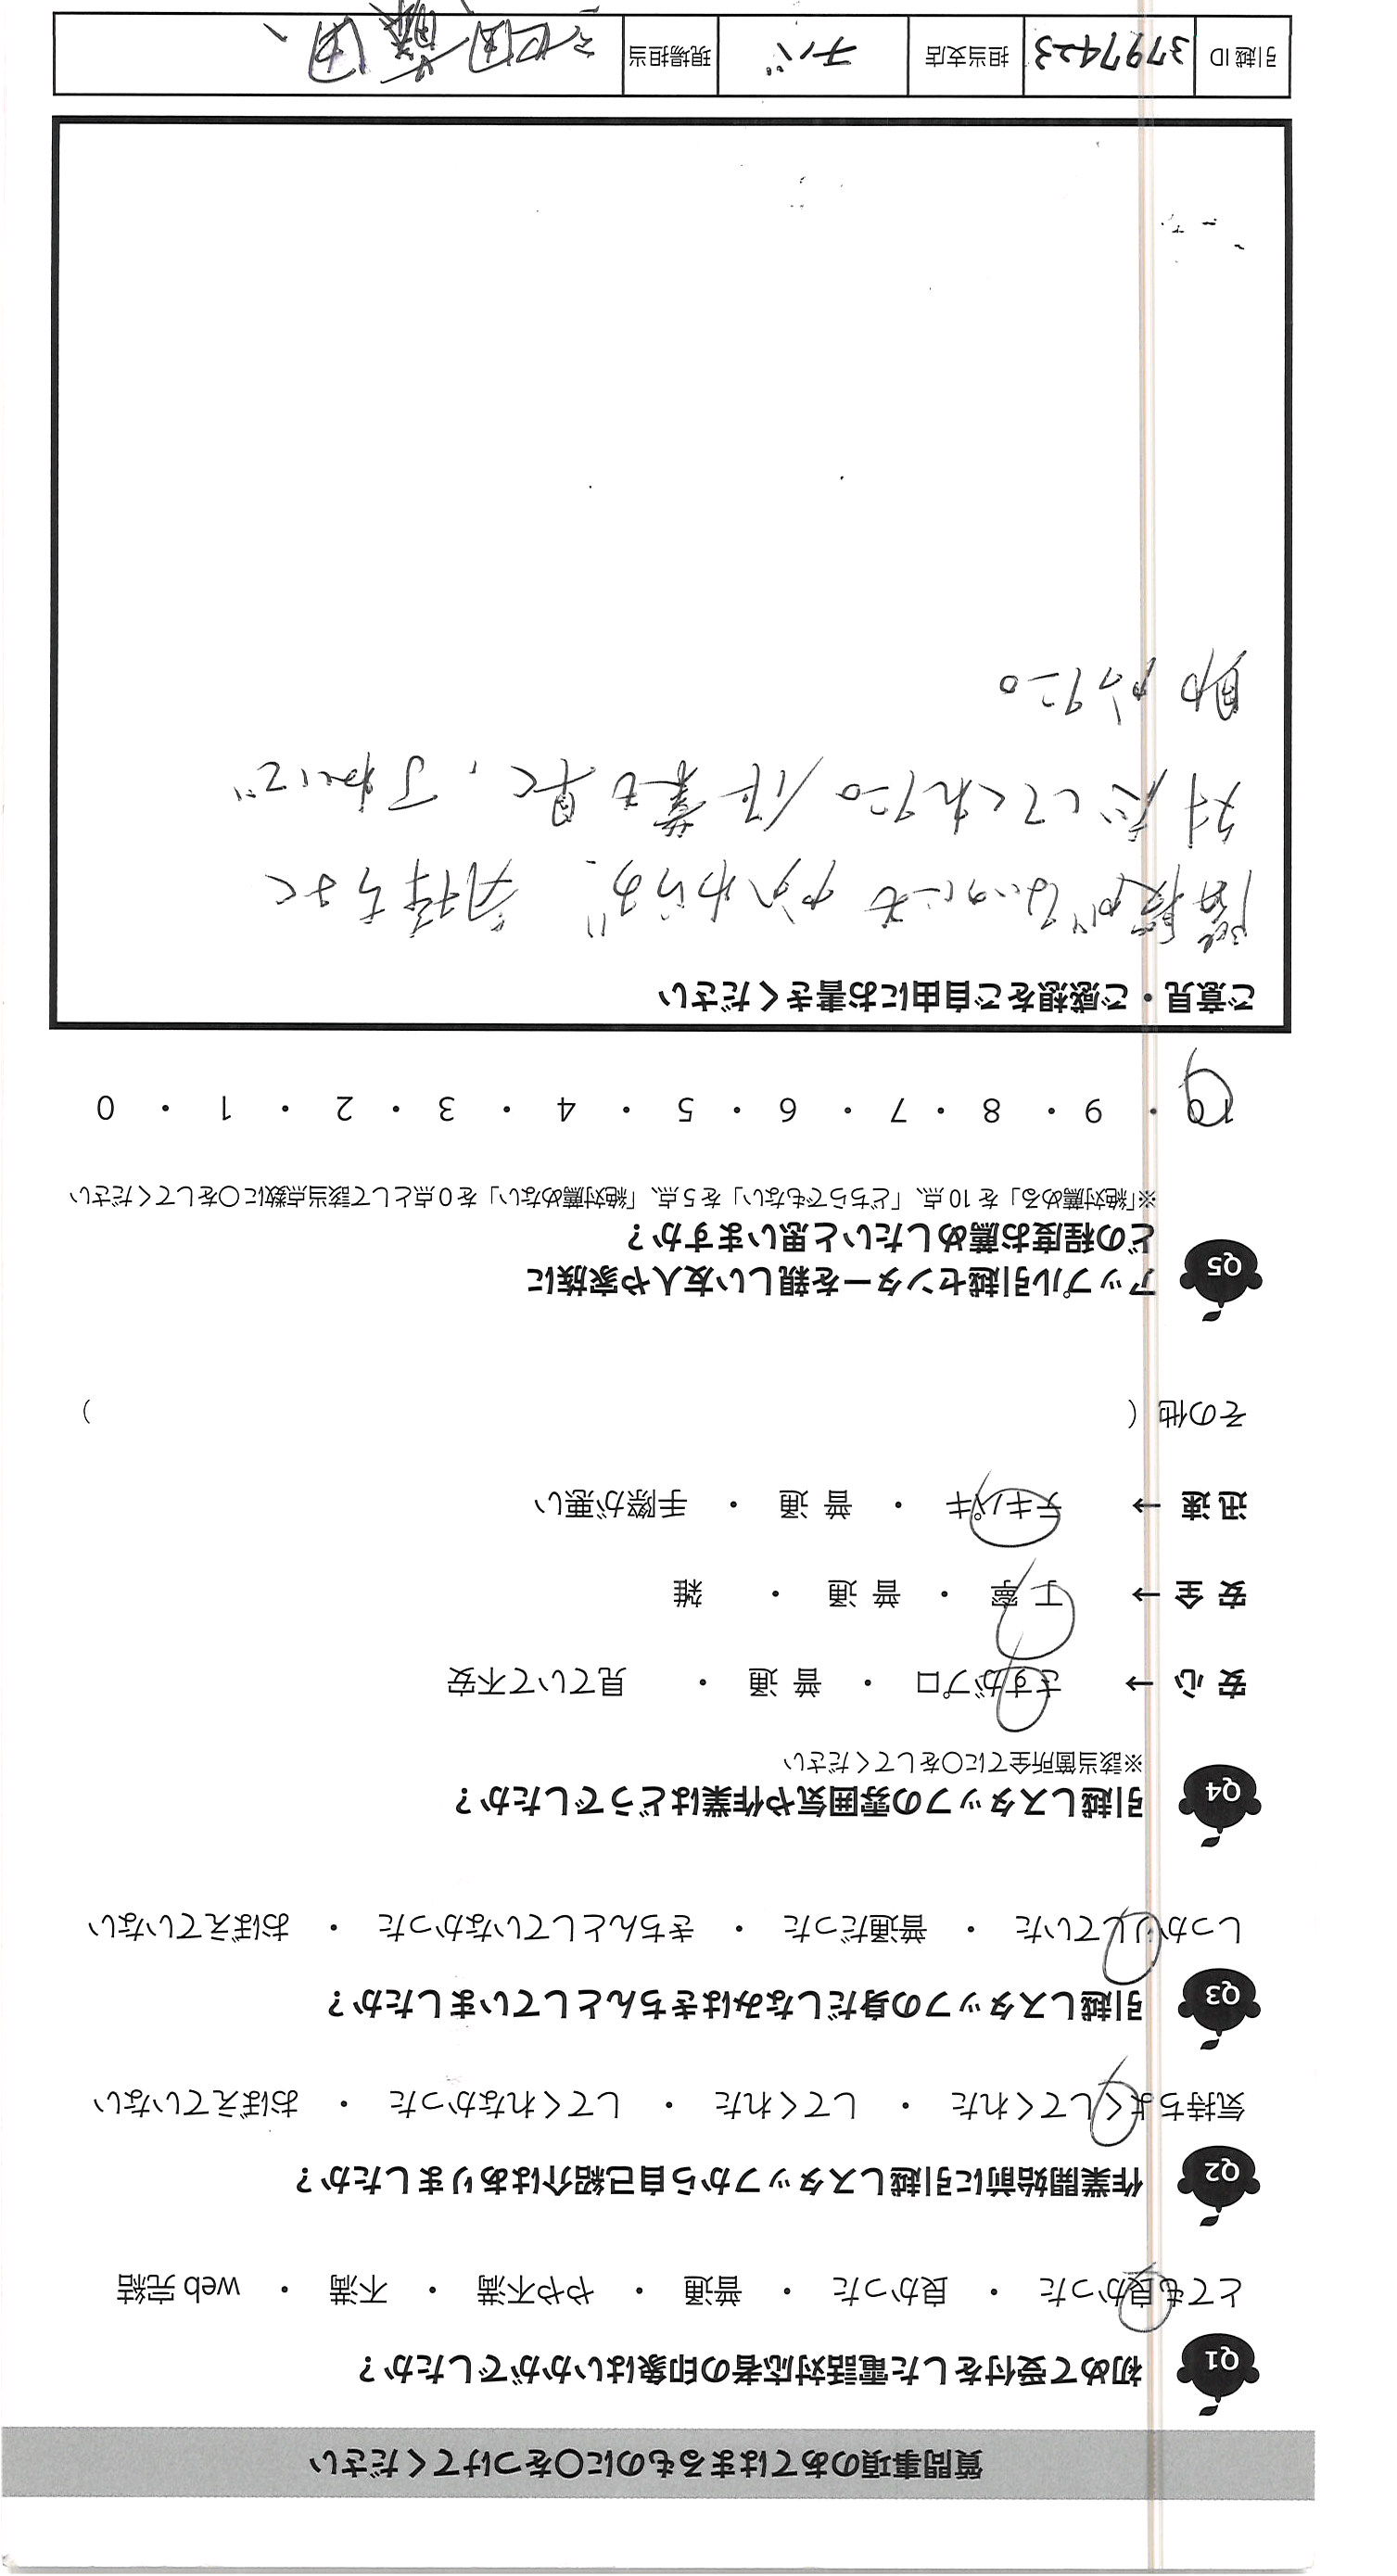 質問事項のあてはまるものに○をつけてください
Q1 初めて受付をした電話対応者の印象はいかがでしたか？
とても良かった ・ 良かった ・ 普通 ・ やや不満 ・ 不満 ・ web 完結
Q2 作業開始前に引越しスタッフから自己紹介はありましたか？
気持ちよくしてくれた ・ してくれた ・ してくれなかった ・ おぼえていない
Q3 引越しスタッフの身だしなみはきちんとしていましたか？
しっかりしていた ・ 普通だった ・ きちんとしていなかった ・ おぼえていない
Q4 引越しスタッフの雰囲気や作業はどうでしたか？
※該当箇所全てに○をしてください
安心 → さすがプロ ・ 普通 ・ 見ていて不安
安全 → 丁寧 ・ 普通 ・ 雑
迅速 → テキパキ ・ 普通 ・ 手際が悪い
その他 （ ）
Q5 アップル引越センターを親しい友人や家族に
どの程度お薦めしたいと思いますか？
※「絶対薦める」を 10 点、「どちらでもない」を 5 点、「絶対薦めない」を 0 点として該当点数に○をしてください
10 ・ 9 ・ 8 ・ 7 ・ 6 ・ 5 ・ 4 ・ 3 ・ 2 ・ 1 ・ 0
ご意見・ご感想をご自由にお書きください
階段がないのにもかかわらず、気持ちよく
対応してくれた。作業も早く、丁ねいで
助かった。
引越 ID 3797423 担当支店 チバ 現場担当